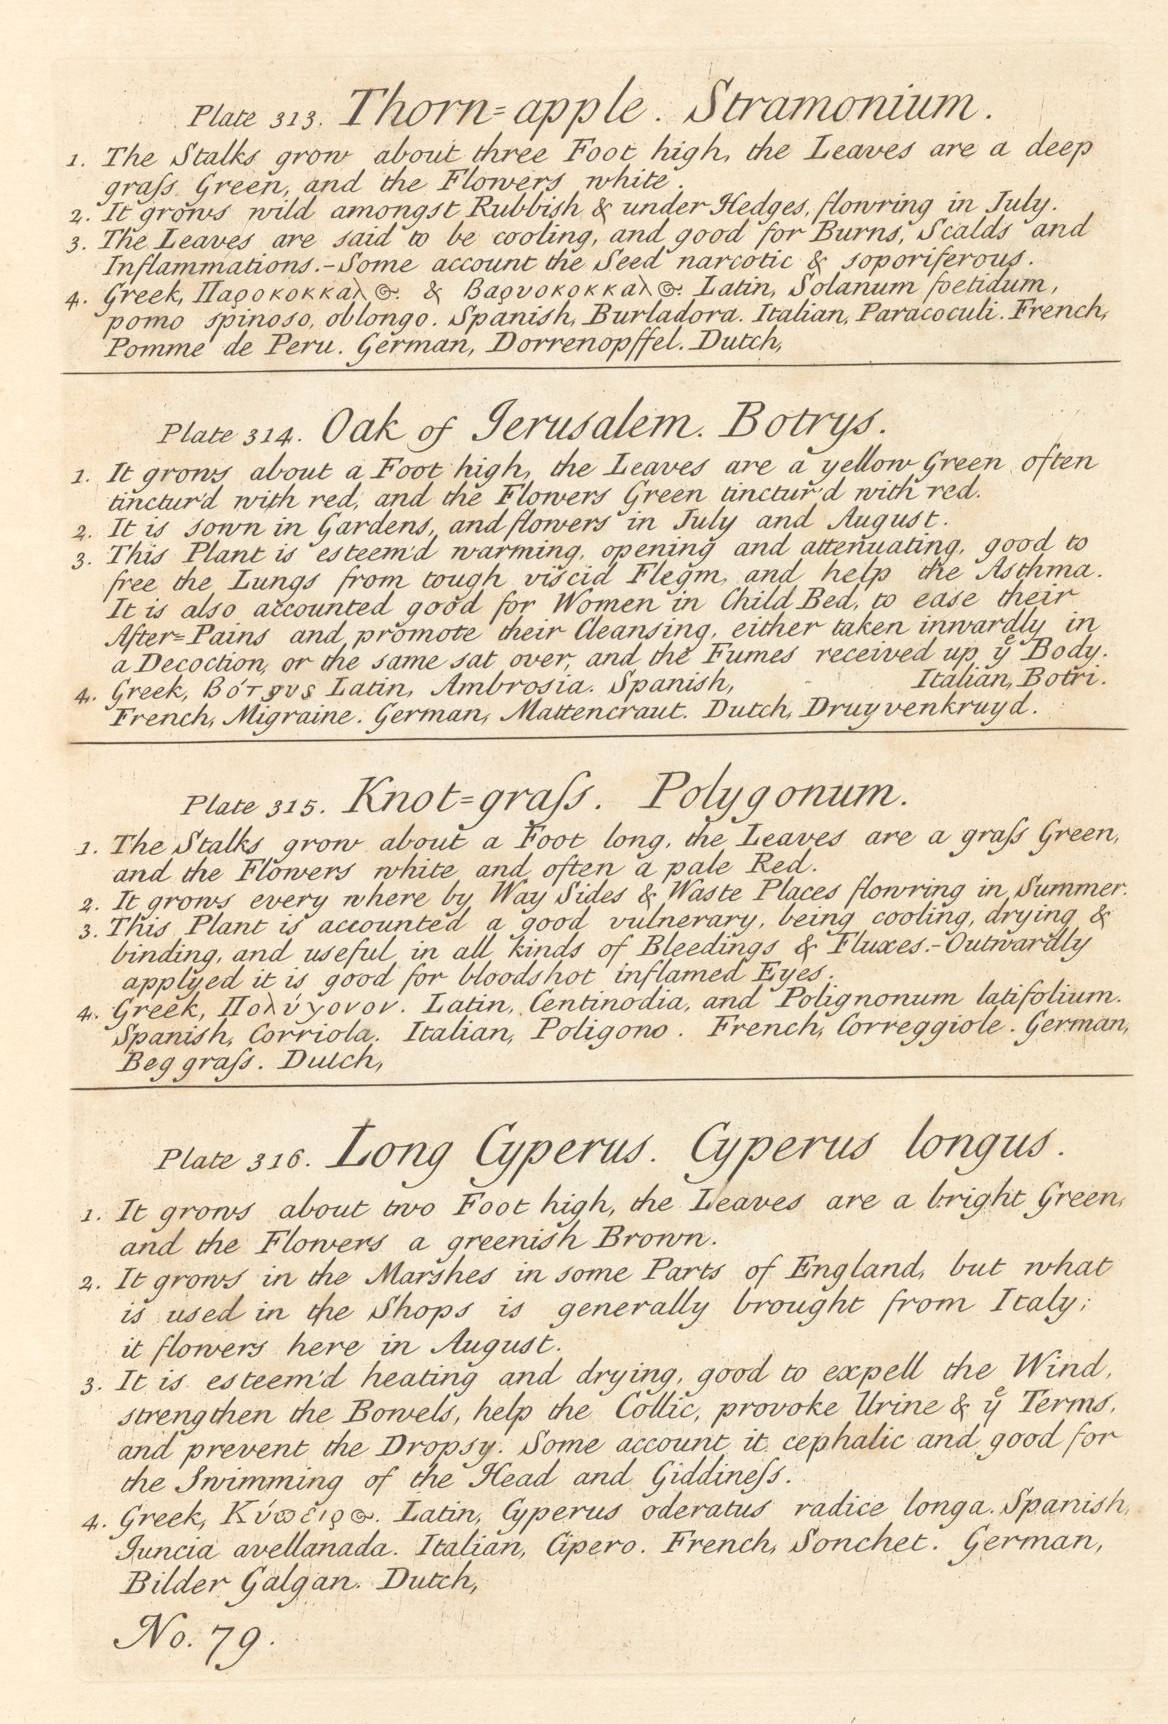 Plate 313. Thorn=apple. Stramonium.
1. The Stalks grow about three Foot high, the Leaves are a deep
graſs Green, and the Flowers white.
2. It grows wild amongst Rubbish & under Hedges, flowring in July.
3. The Leaves are said to be cooling, and good for Burns, Scalds and
Inflammations.-Some account the Seed narcotic & soporiferous.
4. Greek, Παροκοκκαλ & Βαρυοκοκκαλ Latin, Solanum foetidum,
pomo spinoso, oblongo. Spanish, Burladora. Italian, Paracoculi. French,
Pomme de Peru. German, Dorrenopffel. Dutch,
Plate 314. Oak of Jerusalem. Botrys.
1. It grows about a Foot high, the Leaves are a yellow Green often
tinctur'd with red, and the Flowers Green tinctur'd with red.
2. It is sown in Gardens, and flowers in July and August.
3. This Plant is esteem'd warming, opening and attenuating, good to
free the Lungs from tough viscid Flegm, and help the Asthma.
It is also accounted good for Women in Child Bed, to ease their
After=Pains and promote their Cleansing, either taken inwardly in
a Decoction, or the same sat over, and the Fumes received up yͤ Body.
4. Greek, Βότρυς Latin, Ambrosia. Spanish, Italian, Botri.
French, Migraine. German, Mattencraut. Dutch, Druyvenkruyd.
Plate 315. Knot=graſs. Polygonum.
1. The Stalks grow about a Foot long, the Leaves are a graſs Green,
and the Flowers white and often a pale Red.
2. It grows every where by Way Sides & Waste Places flowring in Summer.
3. This Plant is accounted a good vulnerary, being cooling, drying &
binding, and useful in all kinds of Bleedings & Fluxes.-Outwardly
applyed it is good for bloodshot inflamed Eyes.
4. Greek, Πολύγονον. Latin, Centinodia, and Polignonum latifolium.
Spanish, Corriola. Italian, Poligono. French, Correggiole. German,
Beg graſs. Dutch,
Plate 316. Long Cyperus. Cyperus longus.
1. It grows about two Foot high, the Leaves are a bright Green,
and the Flowers a greenish Brown.
2. It grows in the Marshes in some Parts of England, but what
is used in the Shops is generally brought from Italy;
it flowers here in August.
3. It is esteem'd heating and drying, good to expell the Wind,
strengthen the Bowels, help the Collic, provoke Urine & yͤ Terms,
and prevent the Dropsy. Some account it cephalic and good for
the Swimming of the Head and Giddineſs.
4. Greek, Κύϖειρ Latin, Cyperus oderatus radice longa. Spanish,
Juncia avellanada. Italian, Cipero. French, Sonchet. German,
Bilder Galgan. Dutch,
No. 79.